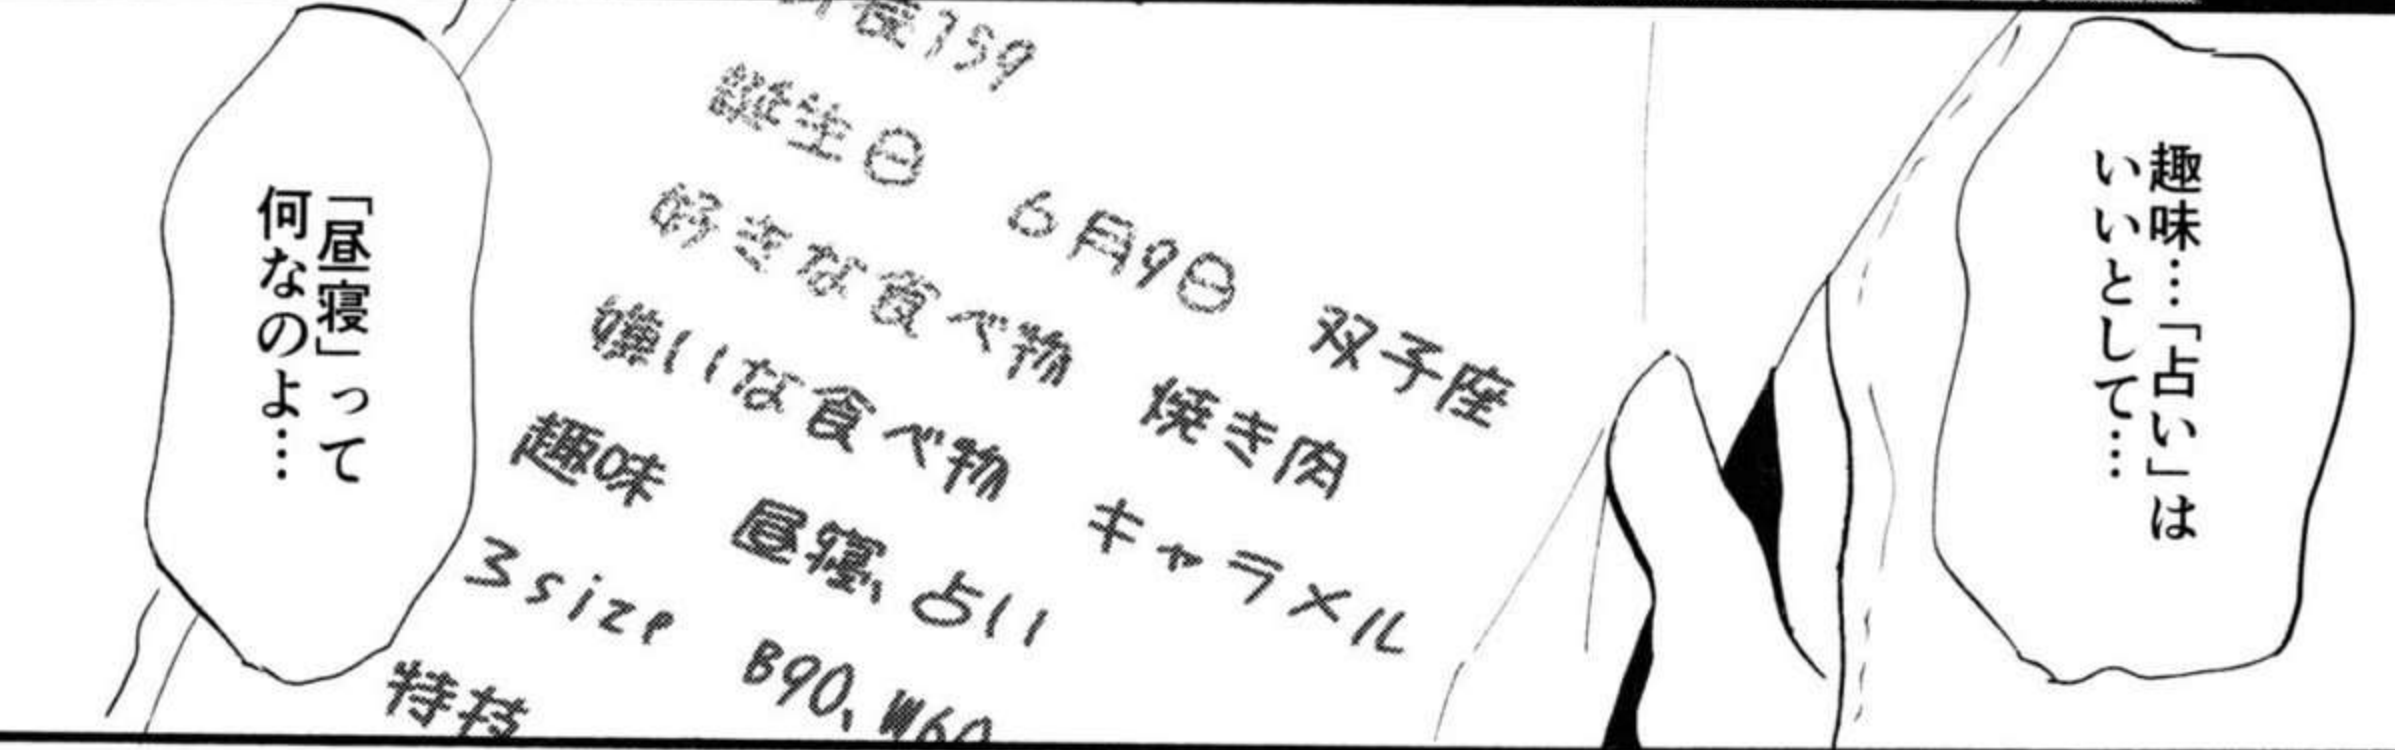 趣味…「占い」は
いいとして…
身長159
誕生日 6月9日 双子座
好きな食べ物 焼き肉
嫌いな食べ物 キャラメル
趣味 昼寝、占い
3size B90、W60
特技
「昼寝」って
何なのよ…